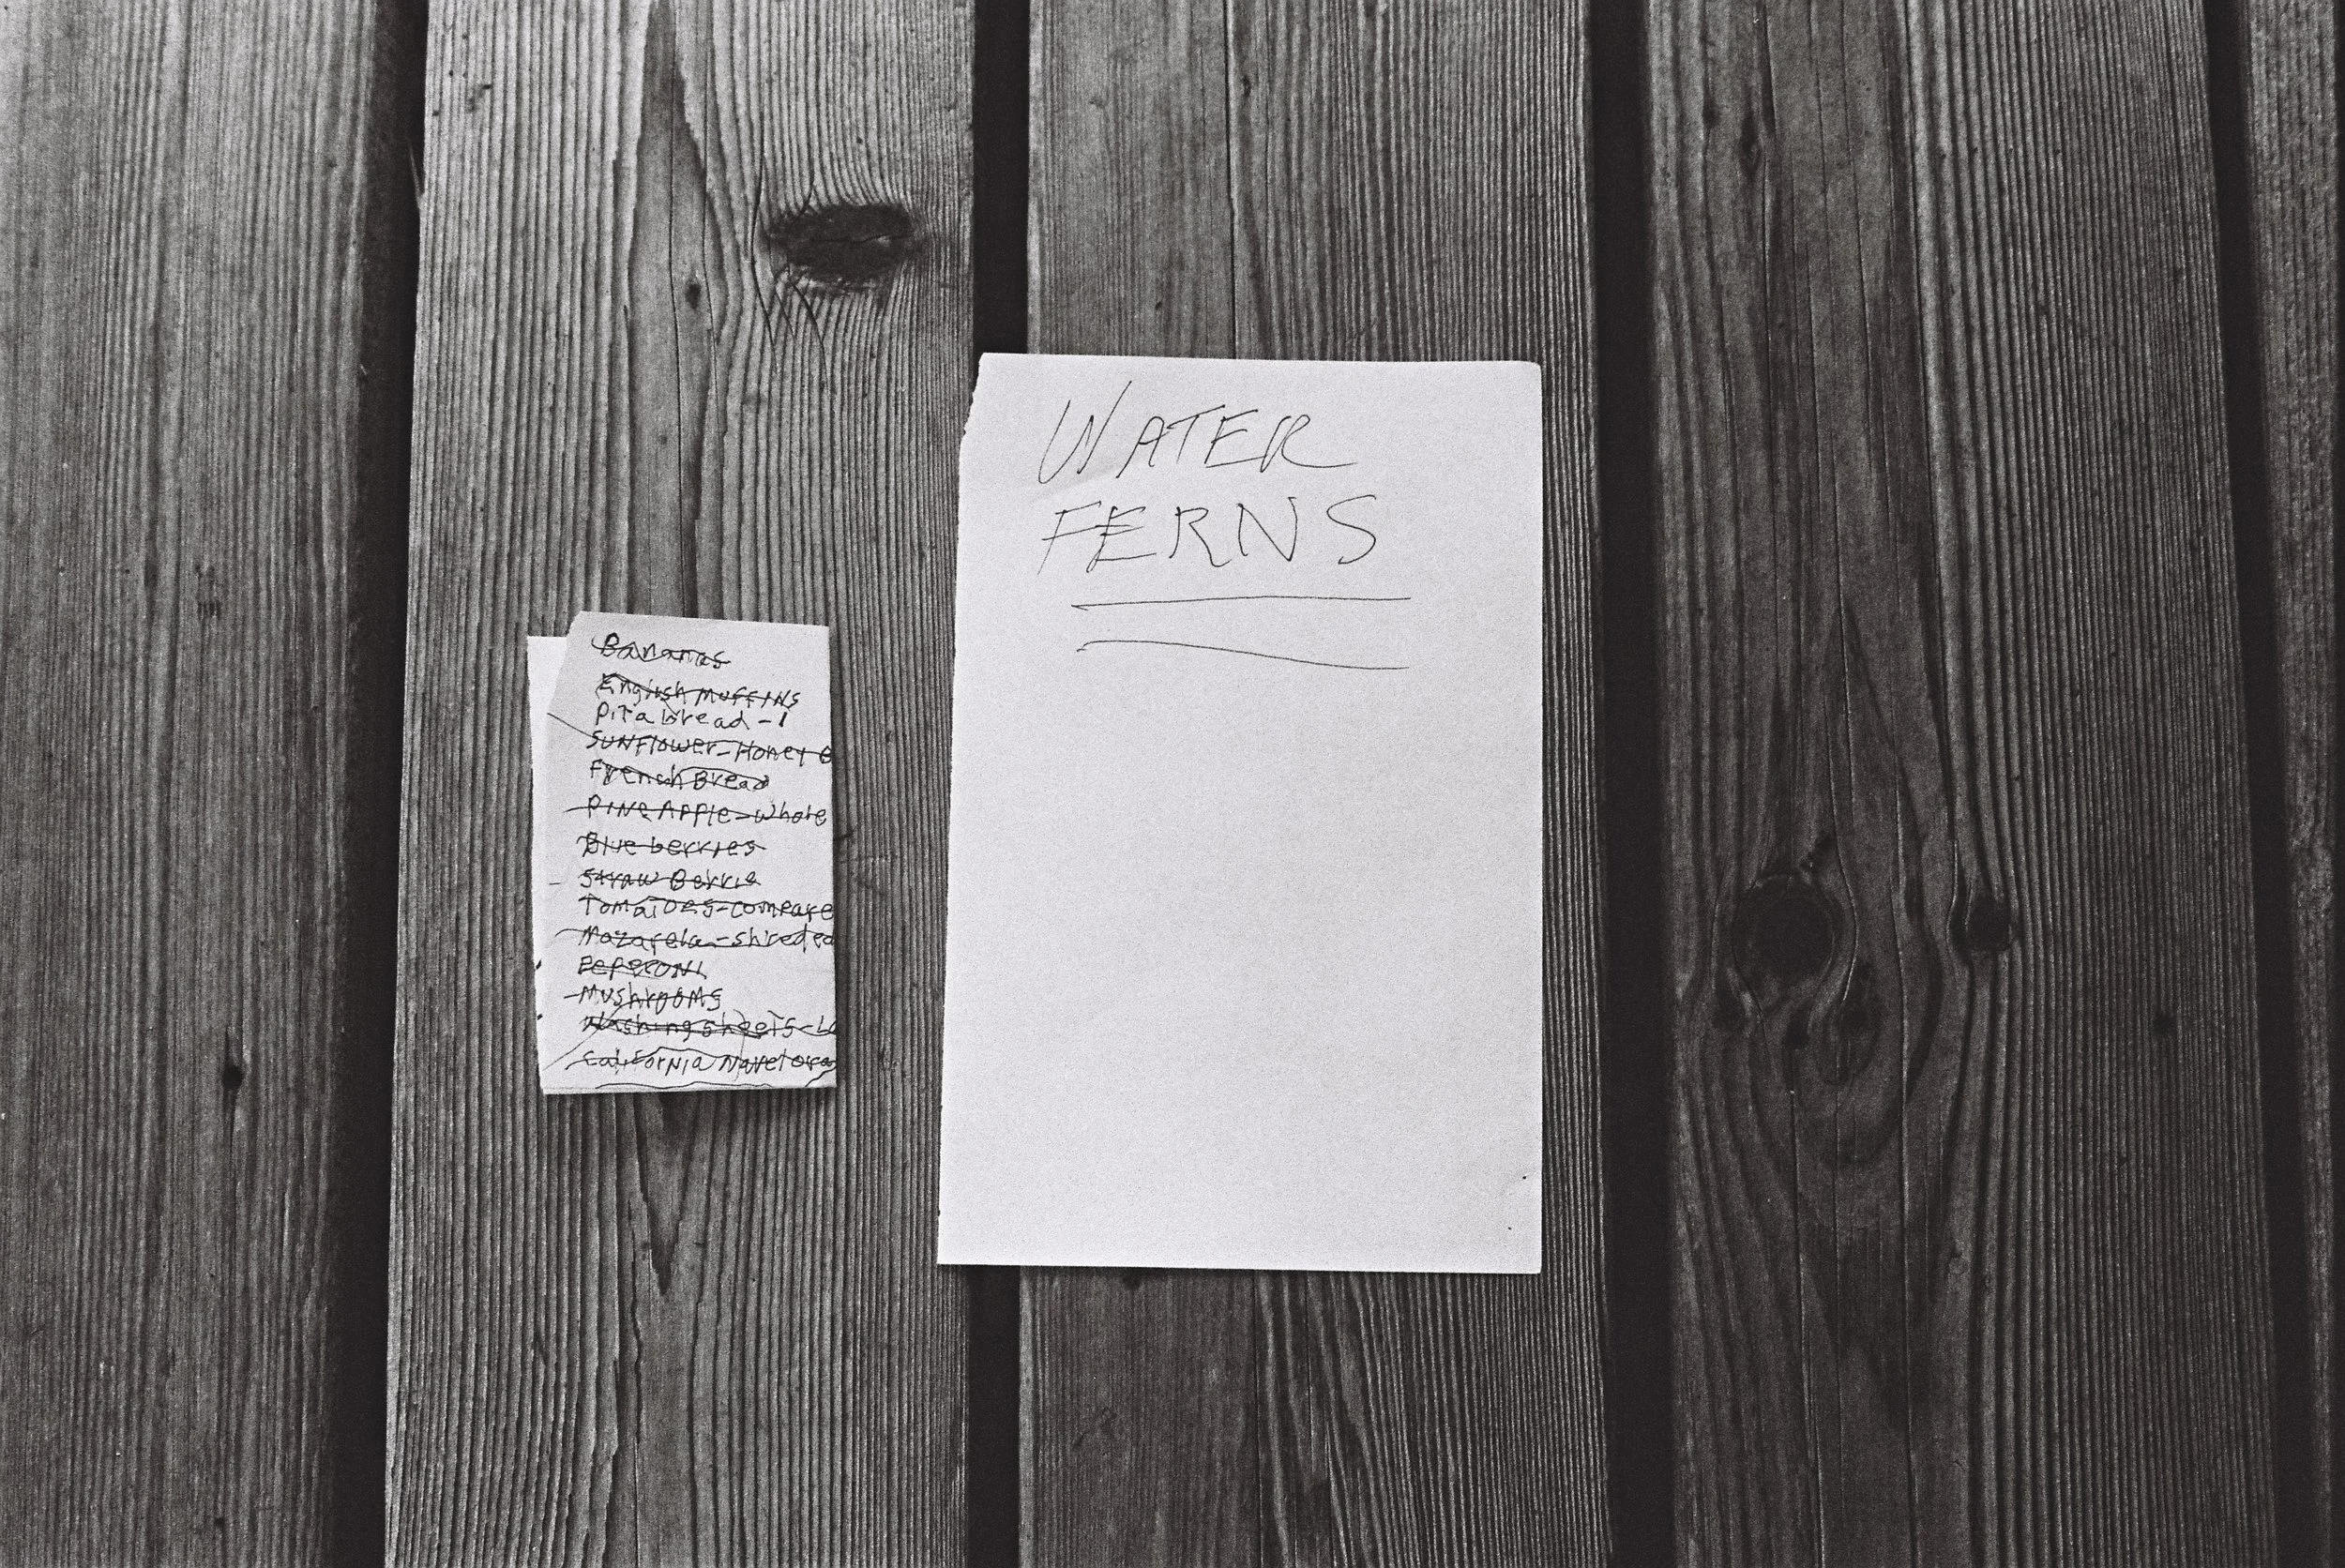 Bananas
English MUFFINS
Pita bread - 1
SUNFlower - Honey
French Bread
PINE APPle - whole
Blue berries
Straw Berrie
TomaTOES - compare
Mazarela - shreded
PEPERONI
MUSHROOMS
Washing sheeTS - L
CaliforNia Navel ora
WATER
FERNS